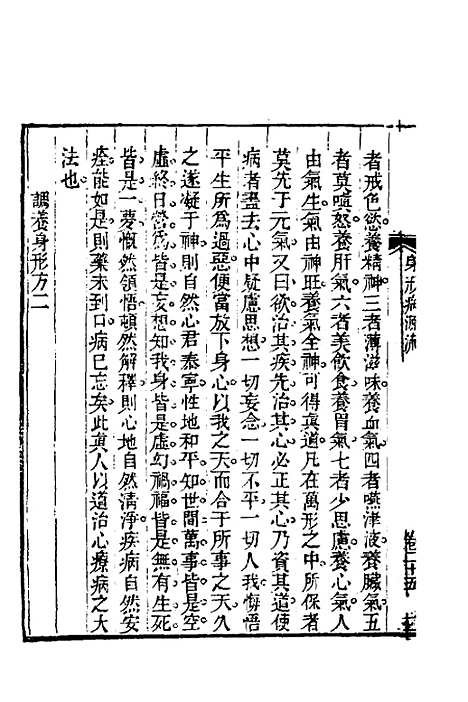 身形病源流
卷二十五
者戒色慾養精神三者薄滋味養血氣四者嚥津液養臟氣五
者莫嗔怒養肝氣六者美飲食養胃氣七者少思慮養心氣人
由氣生氣由神旺養氣全神可得真道凡在萬形之中所保者
莫先于元氣又曰欲治其疾先治其心必正其心乃資其道使
病者盡去心中疑慮思想一切妄念一切不平一切人我悔悟
平生所為過惡便當放下身心以我之天而合于所事之天久
之遂凝于神則自然心君泰寧性地和平知世間萬事皆是空
虛終日營為皆是妄想知我身皆是虛幻禍福皆是無有生死
皆是一夢慨然領悟頓然解釋則心地自然清淨疾病自然安
痊能如是則藥未到口病巳忘矣此真人以道治心療病之大
法也
調養身形方二